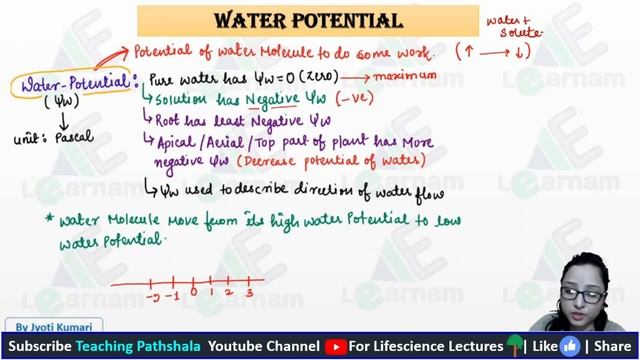 WATER POTENTIAL
water +
solute
Potential of water Molecule to do some work. (↑ → ↓)
Water-Potential: Pure water has Ψw = 0 (zero) → maximum
(Ψw)
Solution has Negative Ψw (-ve)
unit: Pascal
Root has least Negative Ψw
Apical/Aerial/Top part of plant has More
negative Ψw (Decrease potential of water)
Ψw used to describe direction of water flow
* Water Molecule Move from its high water Potential to low
water Potential.
-2 -1 0 1 2 3
Learnam
By Jyoti Kumari
Subscribe Teaching Pathshala Youtube Channel For Lifescience Lectures | Like | Share